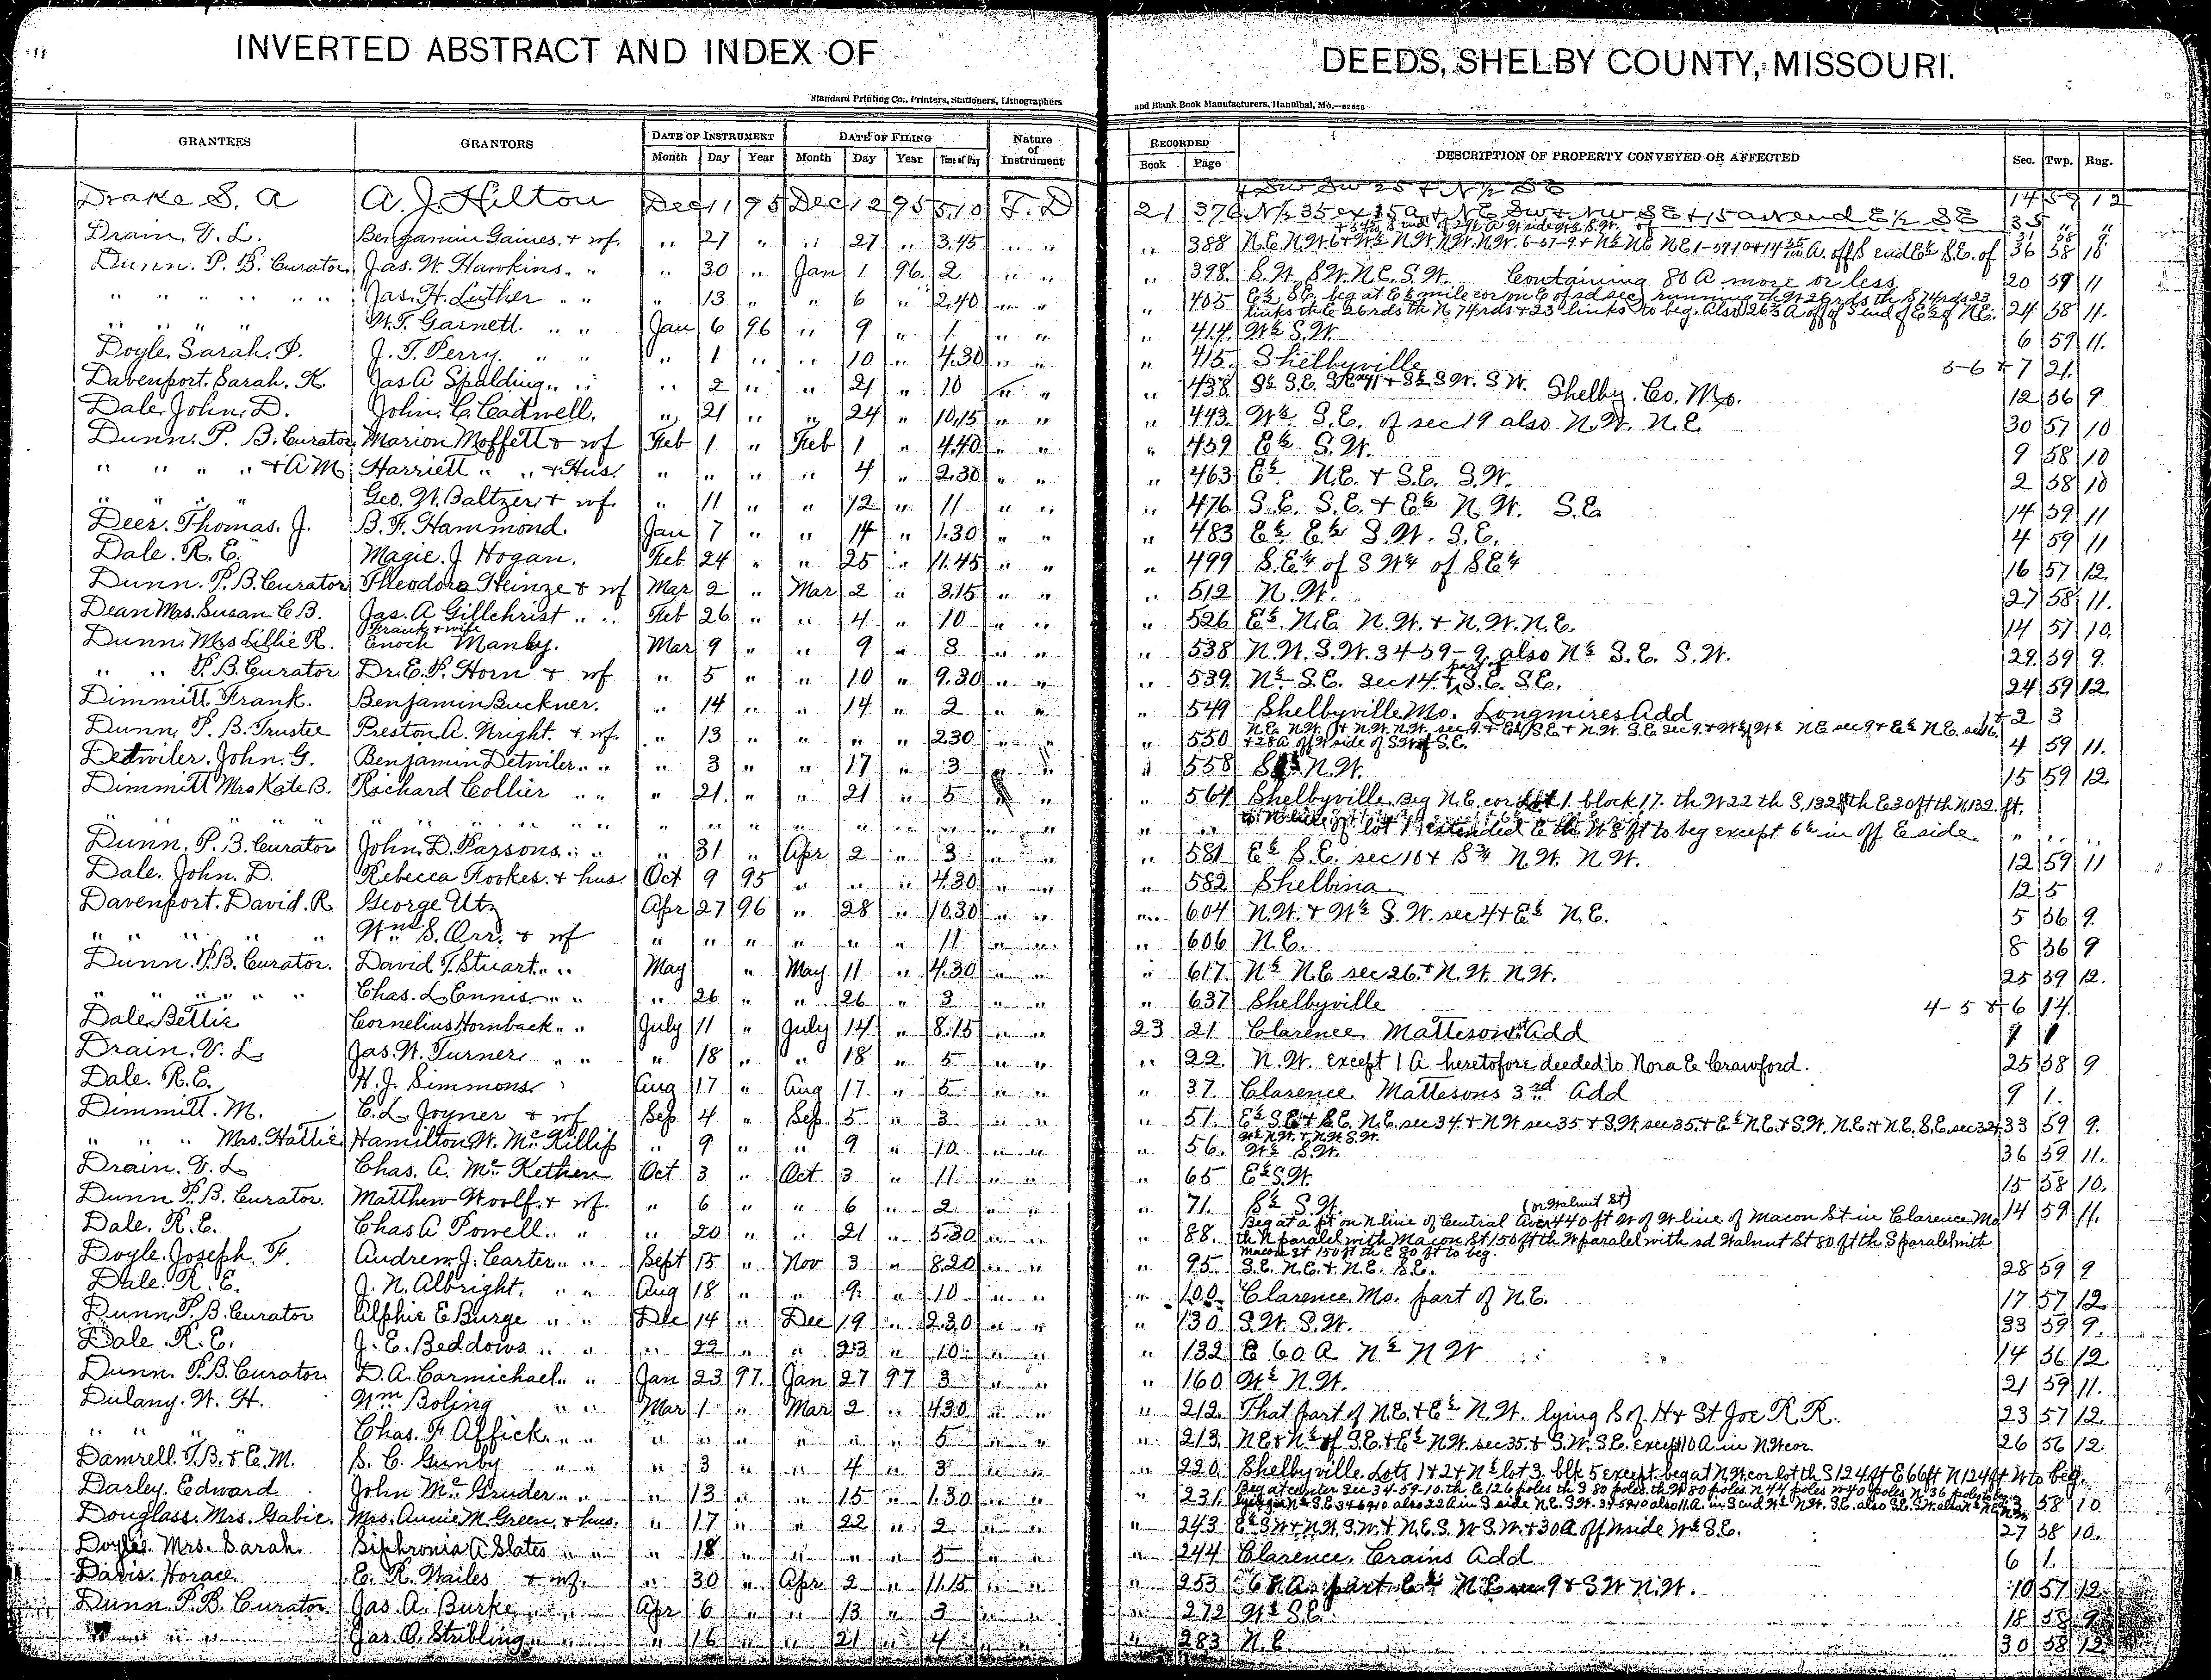 INVERTED ABSTRACT AND INDEX OF DEEDS, SHELBY COUNTY, MISSOURI.
Standard Printing Co., Printers, Stationers, Lithographers and Blank Book Manufacturers, Hannibal, Mo.
GRANTEES GRANTORS DATE OF INSTRUMENT DATE OF FILING Nature of Instrument RECORDED DESCRIPTION OF PROPERTY CONVEYED OR AFFECTED Sec. Twp. Rng.
Month Day Year Month Day Year Time of Day Book Page
+ SW SW 25 + N½ SE 14 59 12
Drake S. A A. J. Hilton Dec 11 95 Dec 12 95 5.10 T. D 21 376 N½ 35 ex 15a + NE SW + NW SE + 15 a end E½ SE 35 " "
Drain. V. L. Benjamin Gaines. + wf. " 27 " " 27 " 3.45 " " " 388 36 58 10
Dunn. P. B. Curator Jas. W. Hawkins. " " 30 " Jan 1 96 2 " " " 398 S.W. SW. N.E. S.W. Containing 80 A more or less 20 59 11
" " " " Jas. H. Luther " " " 13 " " 6 " 2.40 " " " 405 E½ SE. beg at E½ mile cor on E of sd sec running th W 26 rds th S 74 rds 23
links th E 26 rds th N 74 rds + 23 links to beg. Also 26⅔ A off of S end of E½ of N.E. 24 58 11.
" " " " W. T. Garnett. " " Jan 6 96 " 9 " 1 " " " 414 W½ S.W. 6 59 11.
Doyle. Sarah. P. J. T. Perry. " " " 1 " " 10 " 4.30 " " " 415 Shelbyville 5-6 + 7 21.
Davenport. Sarah. K. Jas A Spalding. " " " 2 " " 21 " 10 " " " 438 S½ S.E. + S½ S.W. S.W. Shelby. Co. Mo. 12 56 9
Dale. John. D. John. C. Cadwell. " 21 " " 24 " 10.15 " " " 443 W½ S.E. of sec 19 also N.W. N.E 30 57 10
Dunn. P. B. Curator Marion Moffett + wf Feb 1 " Feb 1 " 4.40 " " " 459 E½ S.W. 9 58 10
" " " " + A M Harriett " " + Hus. " " " " 4 " 2.30 " " " 463 E½ N.E. + S.E. S.W. 2 58 10
" " " " Geo. W. Baltzer + wf. " 11 " " 12 " 11 " " " 476 S.E. S.E. + E½ N.W. S.E 14 59 11
Deer. Thomas. J. B. F. Hammond. Jan 7 " " 14 " 1.30 " " " 483 E½ E½ S.W. S.E. 4 59 11
Dale. R. E. Magie. J Hogan. Feb 24 " " 25 " 11.45 " " " 499 S.E¼ of S W¼ of SE¼ 16 57 12.
Dunn. P. B. Curator Theodore Heinze + wf Mar 2 " Mar 2 " 3.15 " " " 512 N.W. 27 58 11.
Dean Mrs. Susan C B. Jas. A Gillchrist " " Feb 26 " " 4 " 10 " " " 526 E½. N.E N.W. + N.W. N.E. 14 57 10.
Frank + wife
Dunn. Mrs Lillie R. Enoch Manly. Mar 9 " " 9 " 3 " " " 538 N.W. S.W. 34-59-9 also N½ S.E. S.W. 29 59 9.
" " P. B Curator Dr. E. P. Horn + wf " 5 " " 10 " 9.30 " " " 539 N½ S.E. Sec 14. + part S.E. S.E. 24 59 12.
Dimmitt. Frank. Benjamin Buckner. " 14 " " 14 " 2 " " " 549 Shelbyville Mo. Longmires Add 1 + 2 3
Dunn. P. B. Trustee Preston. A. Wright. + wf. " 13 " " " " 2.30 " " " 550 4 59 11.
+ 28 A off W side of SW of S.E.
Detwiler. John. G. Benjamin Detwiler. " " " 3 " " 17 " 3 " " " 558 N.W. 15 59 12.
Dimmitt Mrs Kate B. Richard Collier " " " 21. " " 21 " 5 " " 564 Shelbyville. Beg N.E cor Lot 1. block 17. th W 22 th S, 132 ft th E 30 ft th N 132. ft.
" " " " " " " " " " " " " " " " " " lot 1 extended E th W 8 ft to beg except 6½ in off E side " " "
Dunn. P. B. Curator John. D. Parsons. " " " 31 " Apr 2 " 3 " " " 581 E½ S.E. sec 10 + N.W. N.W. 12 59 11
Dale. John. D. Rebecca Fookes. + hus. Oct 9 95 " " " 4.30 " " " 582 Shelbina 12 5
Davenport. David. R George Utz Apr 27 96 " 28 " 10.30 " " " 604 N.W. + W½ S.W. sec 4 + E½ N.E. 5 56 9.
" " " " Wm S. Orr. + wf " " " " " " 11 " " " 606 N.E. 8 56 9
Dunn. P. B. Curator. David. T. Stuart. " " May " May 11 " 4.30 " " " 617 N½ N.E sec 26. + N.W. N.W. 25 59 12.
" " " " " Chas. L Ennis. " " " 26 " " 26 " 3 " " " 637 Shelbyville 4-5 + 6 14.
Dale Bettie Cornelius Hornback. " " July 11 " July 14 " 8.15 " " 23 21 Clarence Matteson Add
Drain. V. L Jas. W. Turner " " " 18 " " 18 " 5 " " " 22. N.W. except 1 A heretofore deeded to Nora E Crawford. 25 58 9
Dale. R. E. H. J. Simmons Aug 17 " Aug 17 " 5 " " " 37. Clarence Mattesons 3rd Add 9 1.
Dimmitt. M. C. L Joyner + wf Sep 4 " Sep 5 " 3 " " " 51. E½ S.E + S.E. N.E. sec 34. + N.W sec 35 + S.W. sec 35. + E½ N.E. + S.W. N.E. + N.E. S.E. sec 32 + 33 59 9.
W½ N.W. + N.W. S.W.
" " " Mrs. Hattie Hamilton W. McKillip " 9 " " 9 " 10 " " " 56. W½ S.W. 36 59 11.
Drain. V. L Chas. A. McKethen Oct 3 " Oct 3 " 11 " " " 65 E½ S.W. 15 58 10.
Dunn P. B. Curator. Matthew Woolf. + wf. " 6 " " 6 " 2 " " " 71. S½ S.W. 14 59 11.
(or Walnut St)
Beg at a pt on N line of Central Ave 440 ft W of W line of Macon St in Clarence Mo
Dale. R. E. Chas A Powell. " " " 20 " " 21 " 5.30 " " " 88. th N paralel with Macon St 150 ft th W paralel with sd Walnut St 80 ft th S paralel with
Macon St 150 ft th E 80 ft to beg.
Doyle. Joseph. F. Andrew. J. Carter. " " Sept 15 " Nov 3 " 8.20 " " " 95 S.E. N.E. + N.E. S.E. 28 59 9
Dale. R. E. J. N. Albright. " " Aug 18 " " 9 " 10 " " " 100 Clarence. Mo. part of N.E. 17 57 12
Dunn. P. B. Curator Alphie E Burge " " Dec 14 " Dec 19 " 2.30 " " " 130 S.W. S.W. 33 59 9.
Dale R. E. J. E. Beddows " " " 22 " " 23 " 10 " " " 132 E 60 A N½ N W 14 56 12.
Dunn. P. B. Curator D. A. Carmichael. " " Jan 23 97. Jan 27 97 3 " " " 160 W½ N.W. 21 59 11.
Dulany. W. H. Wm Boling " " Mar 1 " Mar 2 " 4.30 " " " 212. That part of N.E. + E½ N.W. lying S of H + St Joe R. R. 23 57 12.
" " " Chas. F Affick. " " " " " " " " 5 " " " 213. N.E + N½ of S.E. + E½ N.W. sec 35. + S.W. S.E. Except 10 A in N.W cor. 26 56 12.
Damrell. T. B. + E. M. S. C. Gunby " " " 3 " " 4 " 3 " " " 220. Shelbyville. Lots 1 + 2 + N½ lot 3. blk 5 except beg at N.W. cor lot th S 124 ft E 66 ft N 124 ft W to beg.
Beg at center Sec 34-59-10. th E 126 poles th S 80 poles. th W 80 poles. N 44 poles W 40 poles N 36 poles to beg
Darley. Edward John McGruder. " " " 13 " " 15 " 1.30 " " " 231. 58 10
Douglass. Mrs. Gabie. Mrs. Annie M. Green. + hus. " 17 " " 22 " 2 " " " 243 E½ S W + N.W. S.W. + N.E. S.W S.W. + 30 A off N side W½ S.E. 27 58 10.
Doyle. Mrs. Sarah. Siphronia A Slates " " " 18 " " " " 5 " " " 244 Clarence. Crains Add 6 1.
Davis. Horace. E. R. Wailes + wf. " 30 " Apr 2 " 11.15 " " " 253 part N.E 9 + S.W N.W. 10 57 12
Dunn. P. B. Curator. Jas A. Burke " " Apr 6 " " 13 " 3 " " " 272 W½ S.E. 18 58 9
" " " Jas. O. Stribling " " " 16 " " 21 " 4 " " " 283 N.E. 30 58 12